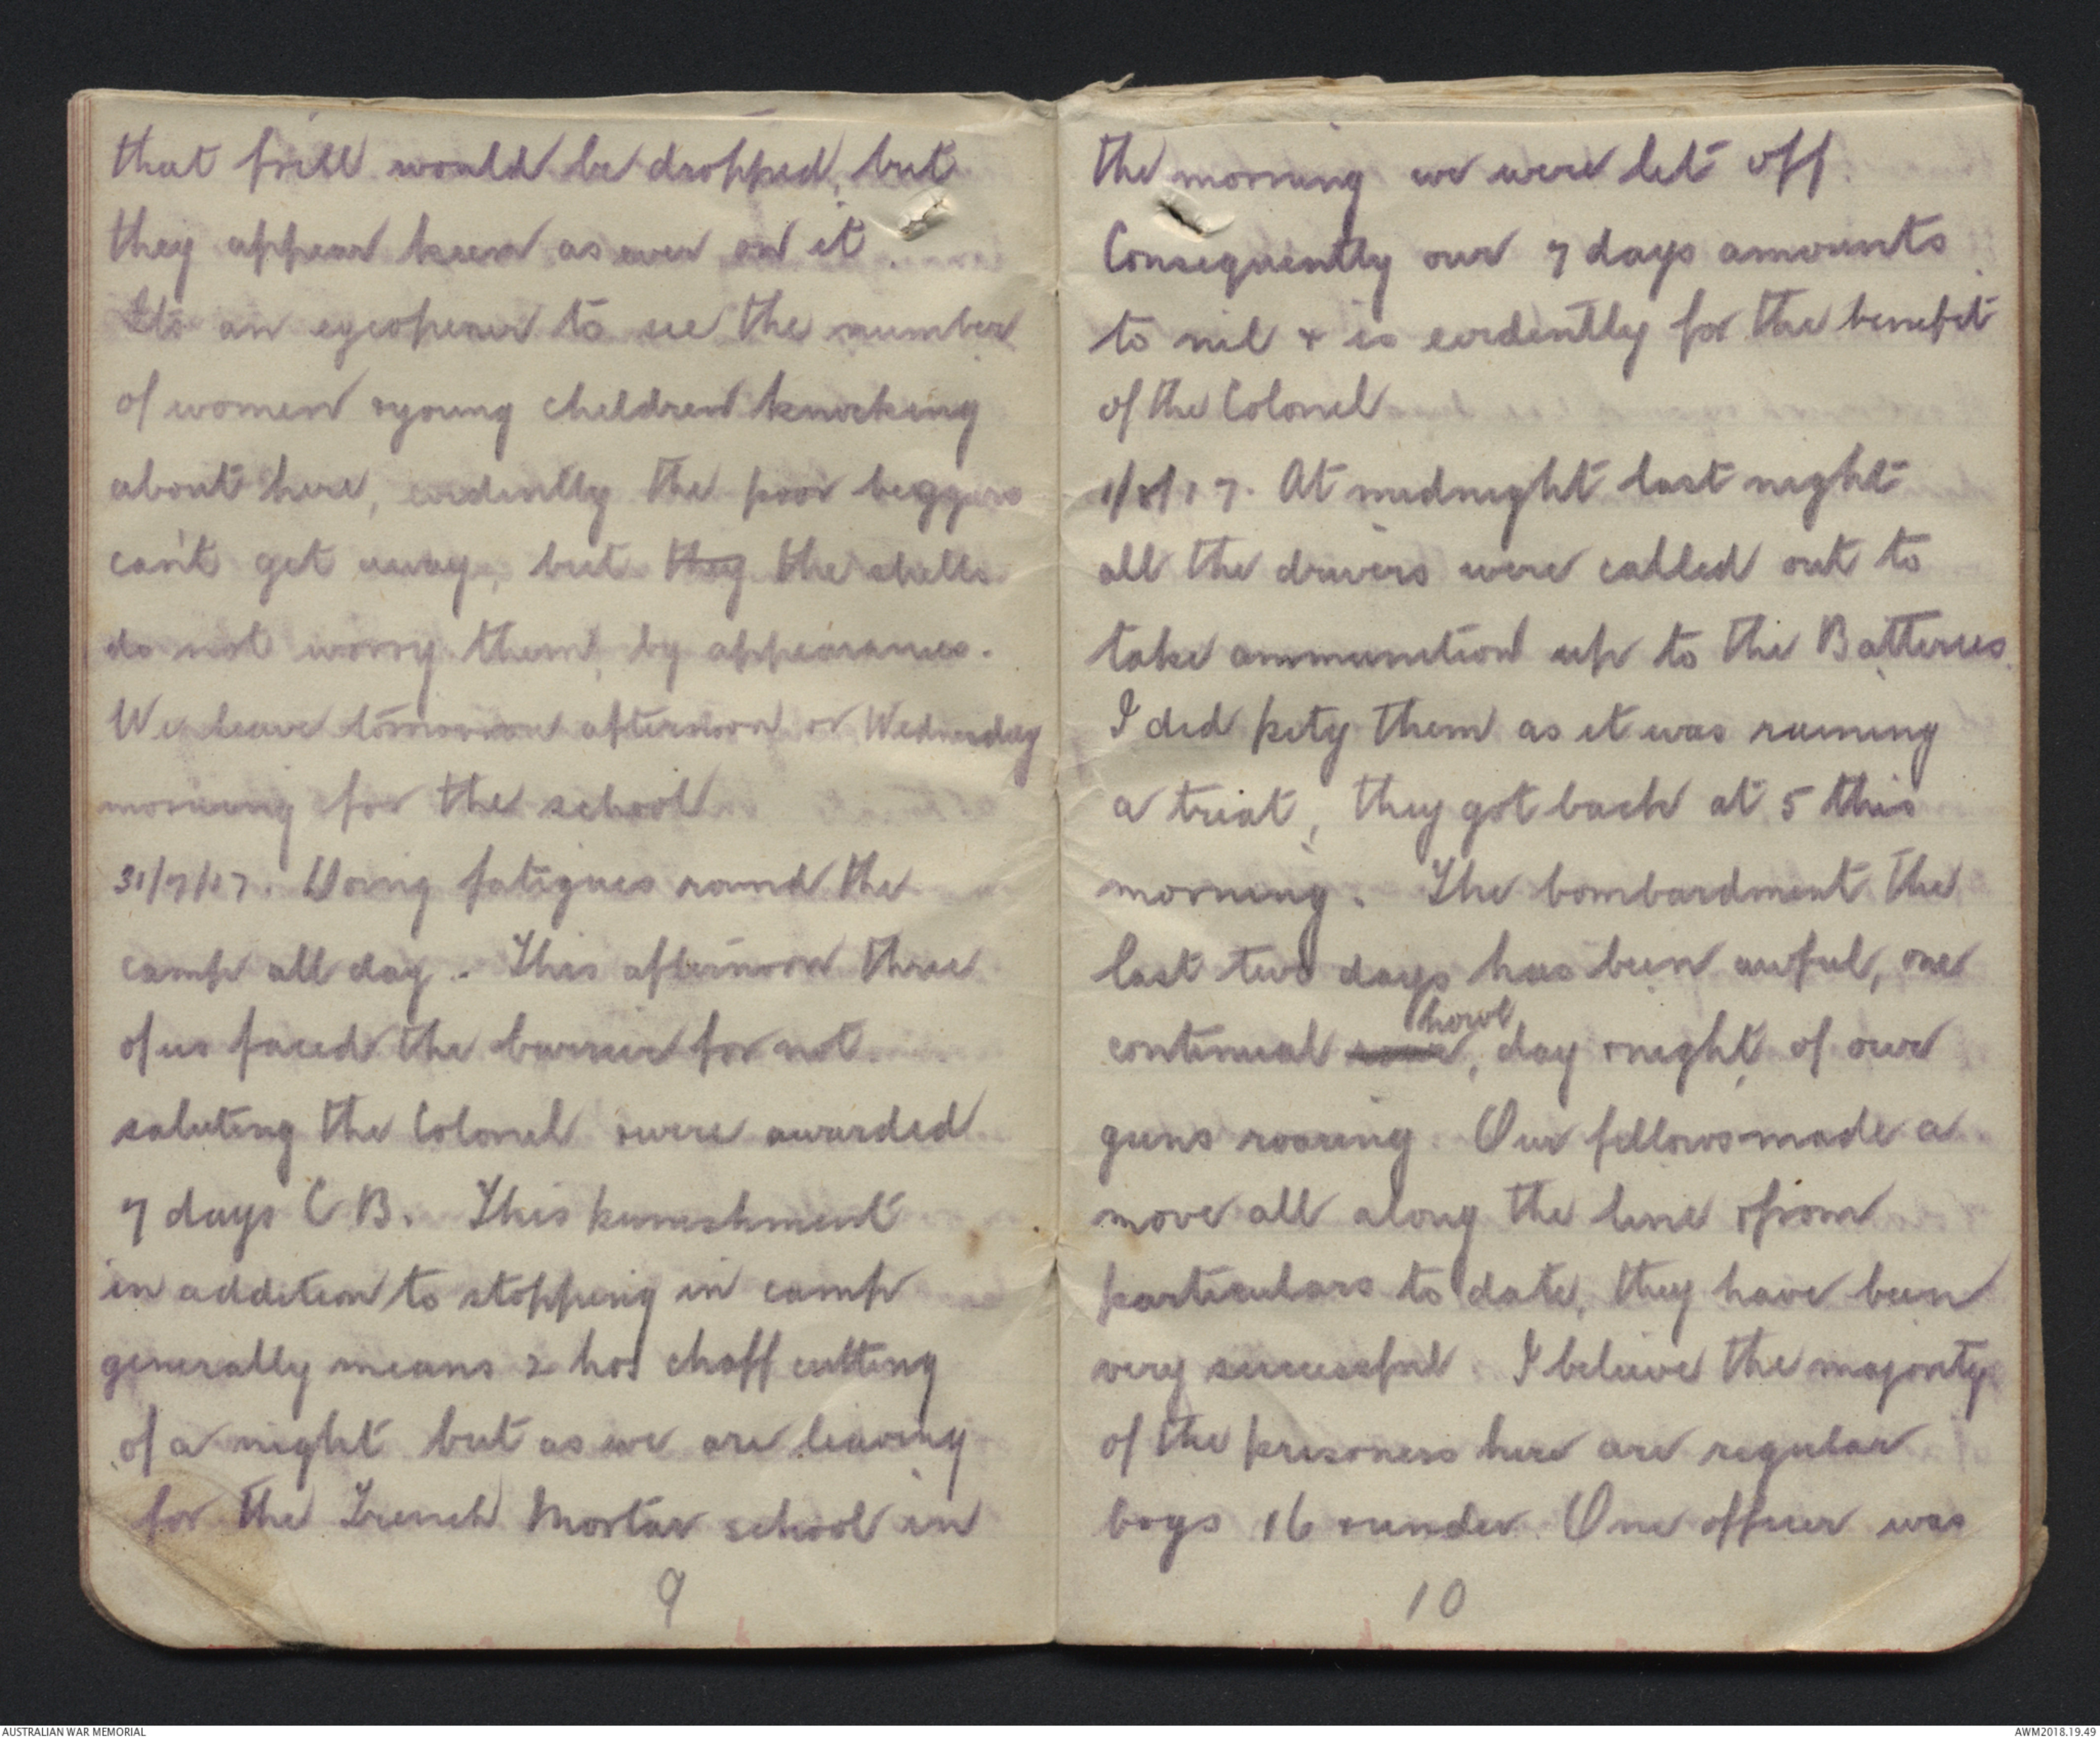 that frill would be dropped, but
they appear keen as ever on it.
Its an eyeopener to see the number
of women & young children knocking
about here, evidently the poor beggars
can't get away, but they the shells
do not worry them by appearances.
We leave tomorrow afternoon or Wednesday
morning for the school
31/7/17. Doing fatigues round the
camp all day. This afternoon three
of us faced the barrier for not
saluting the Colonel & were awarded
7 days C B. This punishment
in addition to stopping in camp
generally means 2 hos chaff cutting
of a night but as we are leaving
for the Trench Mortar school in
9
the morning we were let off.
Consequently our 7 days amounts
to nil & is evidently for the benefit
of the Colonel
1/8/17. At midnight last night
all the drivers were called out to
take ammunition up to the Batteries.
I did pity them as it was raining
a treat, they got back at 5 this
morning. The bombardment the
last two days has been awful, one
howl
continual roar, day & night, of our
guns roaring. Our fellows made a
move all along the line & from
particulars to date, they have been
very successful. I believe the majority
of the prisoners here are regular
boys 16 & under. One officer was
10
AUSTRALIAN WAR MEMORIAL
AWM2018.19.49